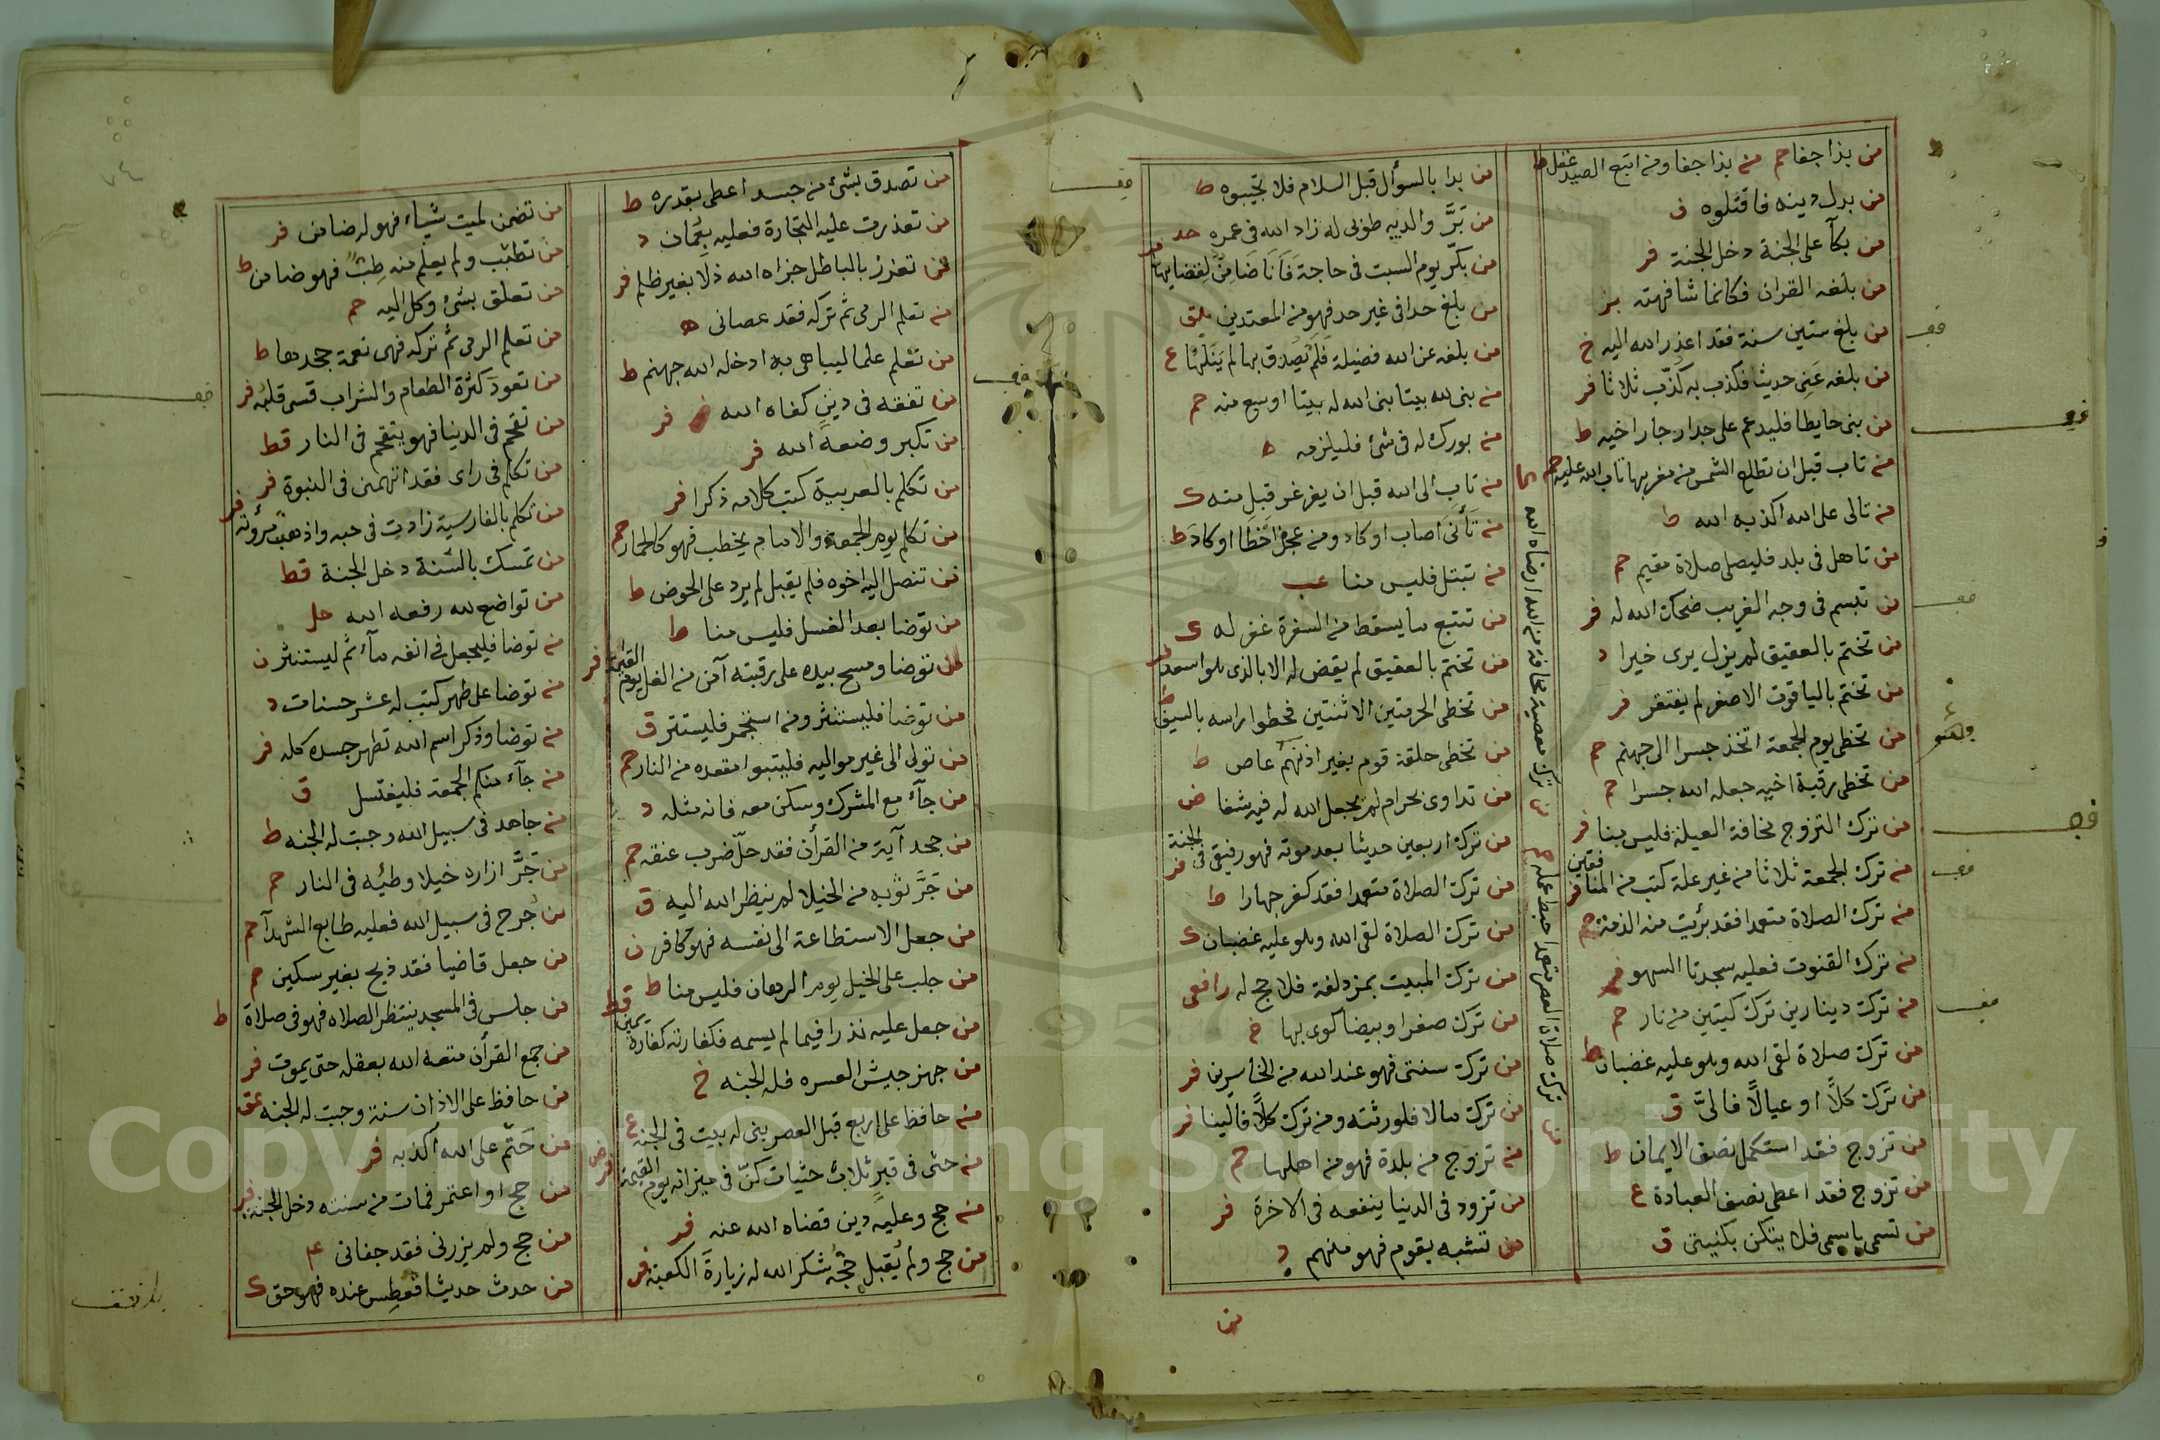 من بذا جفا حم من بذا جفا ومن اتبع الصيد غفل ط
من بدل دينه فاقتلوه
من بكا على الجنة دخل الجنة فر
من بلغه القران فكانما شافهته
من بلغ ستين سنة فقد اعذر الله اليه خ
من بلغه عني حديثا فكذب به كذّب ثلاثا فر
من بنى حايطا فليدعم على جدار جار اخيه ط
من تاب قبل ان تطلع الشمس من مغربها تاب الله عليه حم
من تالى على الله اكذبه الله ط
من تاهل في بلد فليصلي صلاة مقيم حم
من تبسم في وجه الغريب ضحك الله له فر
من تختم بالعقيق لم يزل يرى خيرا
من تختم بالياقوت الاصفر لم يفتقر فر
من تخطى يوم الجمعة اتخذ جسرا الى جهنم حم
من تخطى رقبة اخيه جعله الله جسرا
من ترك التزوج مخافة العيلة فليس منا فر
من ترك الجمعة ثلاثا من غير علة كتب من المنافقين
من ترك الصلاة متعمدا فقد برئت منه الذمة حم
من ترك القنوت فعليه سجدتا السهو
من ترك دينارين ترك كيتين من نار حم
من ترك صلاة لقى الله وهو عليه غضبان ط
من ترك كلًّا او عيالًا فاليّ ق
من تزوج فقد استكمل نصف الايمان ط
من تزوج فقد اعطى نصف العبادة ع
من تسمى باسمى فلا يتكن بكنيتى ق
من ترك معصية مخافة من الله ارضاه الله
من ترك صلاة العصر متعمدا حبط عمله حم
من بدا بالسؤال قبل السلام فلا تجيبوه ط
من برّ والديه طوبى له زاد الله في عمره خد
من بكّر يوم السبت في حاجة فانا ضامن لقضايها
من بلغ حدا في غير حد فهو من المعتدين
من بلغه عن الله فضيلة فلم يصدق بها لم ينلها ع
من بنى لله بيتا بنى الله له بيتا اوسع منه حم
من بورك له في شئ فليلزمه ه
من تاب الى الله قبل ان يغرغر قبل منه ك
من تأنى اصاب او كاد ومن عجل اخطا او كاد ط
من تبتل فليس منا عب
من تتبع ما يسقط من السفرة غفر له
من تختم بالعقيق لم يقض له الا بالذى هو اسعد
من تخطى الحرمتين الاثنتين فخطوا راسه بالسيف ط
من تخطى حلقة قوم بغير اذنهم عاص ط
من تداوى بحرام لم يجعل الله له فيه شفا
من ترك اربعين حديثا بعد موته فهو رفيقى في الجنة فر
من ترك الصلاة متعمدا فقد كفر جهارا ط
من ترك الصلاة لقى الله وهو عليه غضبان ك
من ترك المبيت بمزدلفة فلا حج له رافعى
من ترك صفرا او بيضا كوى بها
من ترك سنتى فهو عند الله من الخاسرين فر
من ترك مالا فلورثته ومن ترك كلًّا فالينا
من تزوج من بلدة فهو من اهلها حم
من تزود في الدنيا ينفعه في الاخرة فر
من تشبه بقوم فهو منهم د
من
من تصدق بشئ من جسد اعطى بقدره ط
من تعذرت عليه التجارة فعليه بعمان
من تعزز بالباطل جزاه الله ذلا بغير ظلم فر
من تعلم الرمى ثم تركه فقد عصانى ه
من تعلم علما ليباهى به ادخله الله جهنم ط
من تفقه في دين كفاه الله فر
من تكبر وضعه الله فر
من تكلم بالعربية كتب كلامه ذكرا فر
من تكلم يوم الجمعة والامام يخطب فهو كالحمار حم
من تنصل اليه اخوه فلم يقبل لم يرد على الحوض ط
من توضا بعد الغسل فليس منا ط
من توضا ومسح بيده على رقبته آمن من الغل يوم القيمة فر
من توضا فليستنثر ومن استجمر فليستتر ق
من تولى الى غير مواليه فليتبوا مقعده من النار حم
من جاء مع المشرك وسكن معه فانه مثله د
من جحد آية من القرأن فقد حلّ ضرب عنقه
من جرّ ثوبه من الخيلا لم ينظر الله اليه ق
من جعل الاستطاعة الى نفسه فهو كافر
من جلب على الخيل يوم الرهان فليس منا ط
من جعل عليه نذرا فيما لم يسمه فكفارته كفارة يمين قط
من جهز جيش العسره فله الجنه خ
من حافظ على اربع قبل العصر بنى له بيت في الجنه ع
من حثى في قبر ثلاث حثيات كنّ في ميزانه يوم القيمة
من حج وعليه دين قضاه الله عنه فر
من حج ولم يقبل حجه شكر الله له زيارة الكعبة فر
من تضمن لميت شياء فهو له ضامن فر
من تطبّب ولم يعلم منه طبّ فهو ضامن ط
من تعلق بشئ وكل اليه حم
من تعلم الرمى ثم تركه فهى نعمة جحدها ط
من تعود كثرة الطعام والشراب قسى قلبه فر
من تقحم في الدنيا فهو يتقحم في النار قط
من تكلم في راى فقد اتهمنى في النبوة فر
من تكلم بالفارسية زادت في خبه واذهبت مرؤته فر
من تمسك بالسّنة دخل الجنة قط
من تواضع لله رفعه الله حل
من توضا فليجعل في انفه ماء ثم ليستنثر ن
من توضا على طهر كتب له عشر حسنات د
من توضا وذكر اسم الله تطهر جسده كله فر
من جاء منكم الجمعة فليغتسل ق
من جاهد في سبيل الله وجبت له الجنه ط
من جرّ ازاره خيلا وطئه في النار حم
من جرح في سبيل الله فعليه طابع الشهدآ حم
من جعل قاضيا فقد ذبح بغير سكين حم
من جلس في المسجد ينتظر الصلاه فهو في صلاة ط
من جمع القرأن متعه الله بعقله حتى يموت فر
من حافظ على الاذان سنة وجبت له الجنه عق
من حتّم على الله أكذبه فر
من حج او اعتمر فمات من سنته دخل الجنة فر
من حج ولم يزرنى فقد جفانى
من حدث حديثا فعطس عنده فهو حق ك